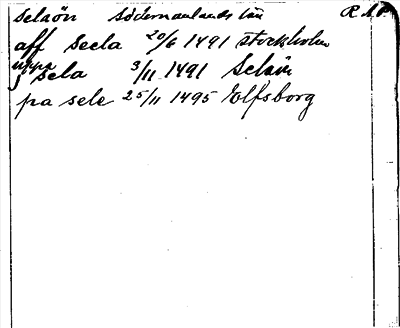 Selaön Södermanlands län R.A.P.
aff Seela 20/6 1491 Stockholm
uppa
j sela 3/11 1491 Selaön
pa sele 25/11 1495 Elfsborg